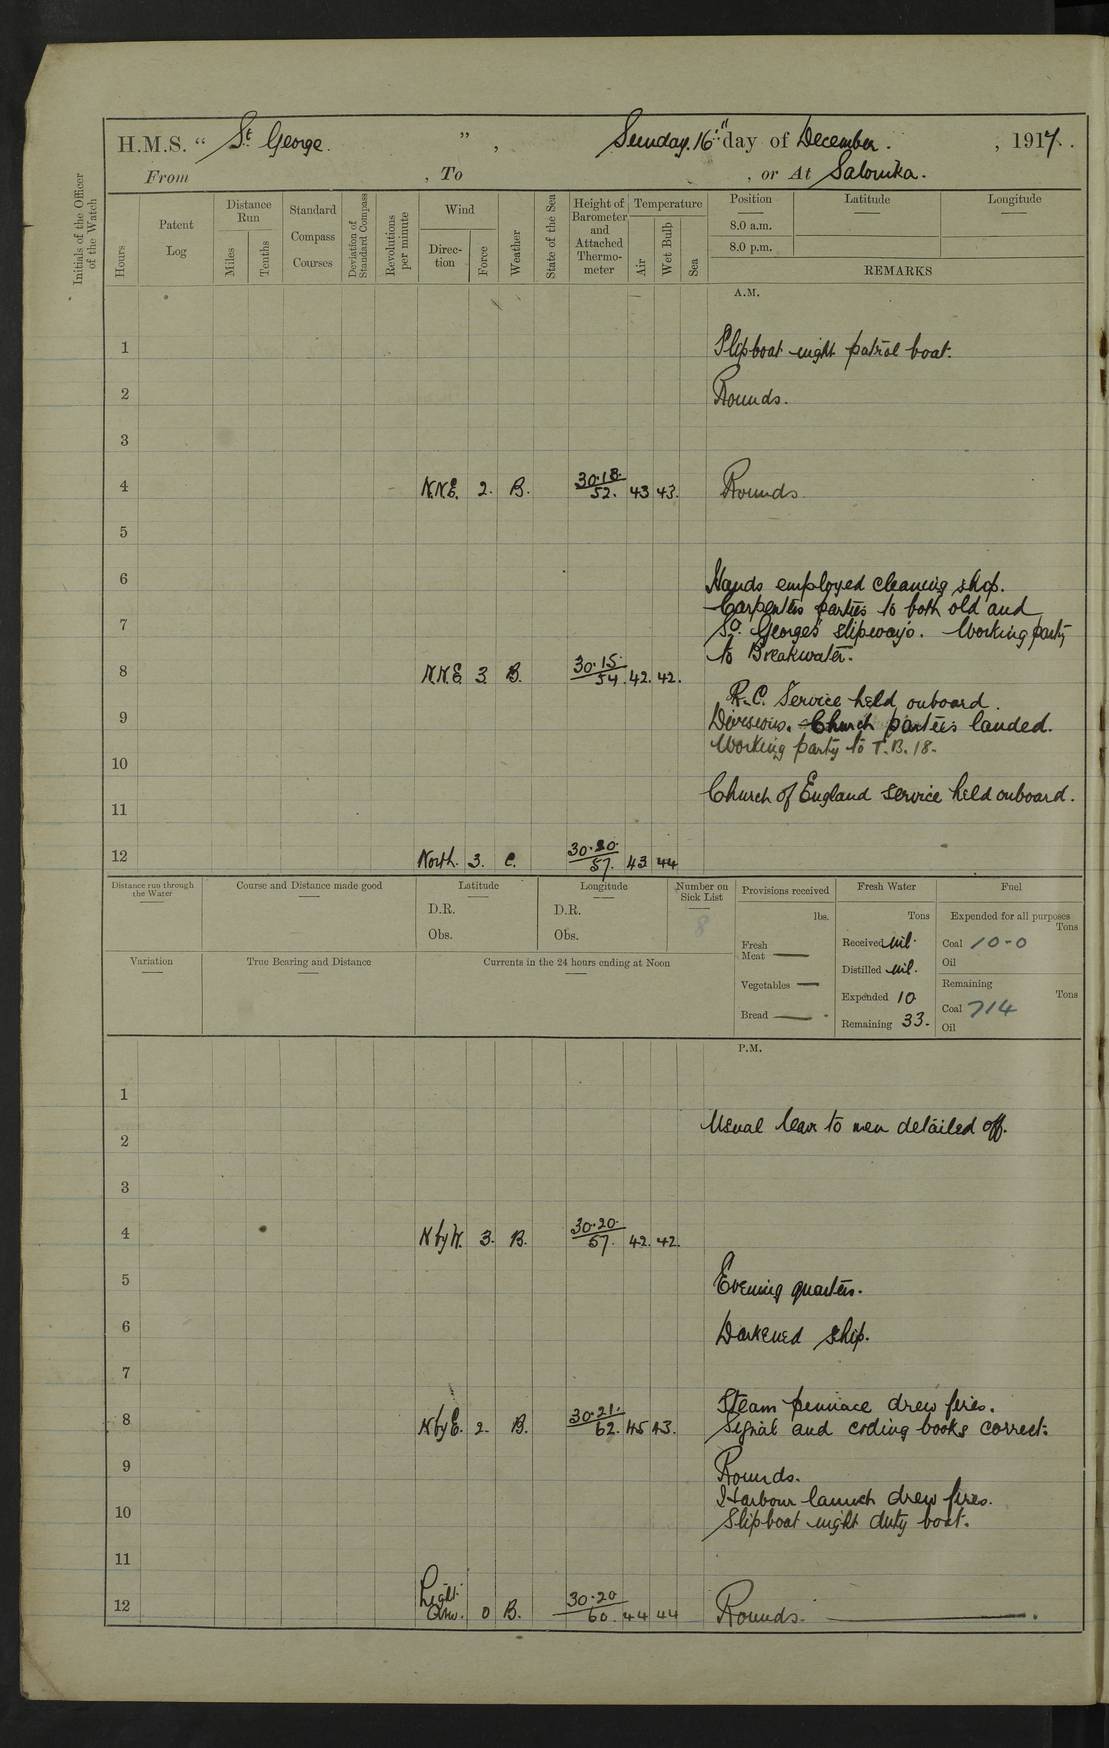 H.M.S. " St George. ", Sunday. 16th day of December. , 1917.
From , To , or At Salonika.
Initials of the Officer of the Watch
Hours
Patent Log
Distance Run
Miles
Tenths
Standard Compass Courses
Deviation of Standard Compass
Revolutions per minute
Wind
Direction
Force
Weather
State of the Sea
Height of Barometer and Attached Thermometer
Temperature
Air
Wet Bulb
Sea
Position
8.0 a.m.
8.0 p.m.
Latitude
Longitude
REMARKS
A.M.
1 Slipboat night patrol boat.
2 Rounds.
3
4 N.N.E. 2. B. 30.18. 52. 43 43. Rounds
5
6 Hands employed cleaning ship.
Carpenters parties to both old and
7 St. Georges' slipways. Working party
to Breakwater.
8 N.N.E. 3. B. 30.15. 54. 42. 42.
R.C. Service held onboard.
9 Divisions. Church parties landed.
Working party to T.B. 18.
10
Church of England service held onboard.
11
12 North. 3. C. 30.20. 57. 43 44
Distance run through the Water
Course and Distance made good
Latitude
D.R.
Obs.
Longitude
D.R.
Obs.
Number on Sick List
8
Provisions received
lbs.
Fresh Meat —
Vegetables —
Bread —
Fresh Water
Tons
Received nil.
Distilled nil.
Expended 10
Remaining 33.
Fuel
Expended for all purposes
Tons
Coal 10-0
Oil
Remaining
Tons
Coal 714
Oil
Variation
True Bearing and Distance
Currents in the 24 hours ending at Noon
P.M.
1
Usual leave to men detailed off.
2
3
4 N by W. 3. B. 30.20. 57. 42. 42.
5 Evening quarters.
6 Darkened ship.
7
Steam pinnace drew fires.
8 N by E. 2. B. 30.21. 62. 45 43. Signal and coding books correct.
9 Rounds.
Harbour launch drew fires.
10 Slipboat night duty boat.
11
12 Light Airs. 0 B. 30.20 60. 44 44 Rounds.